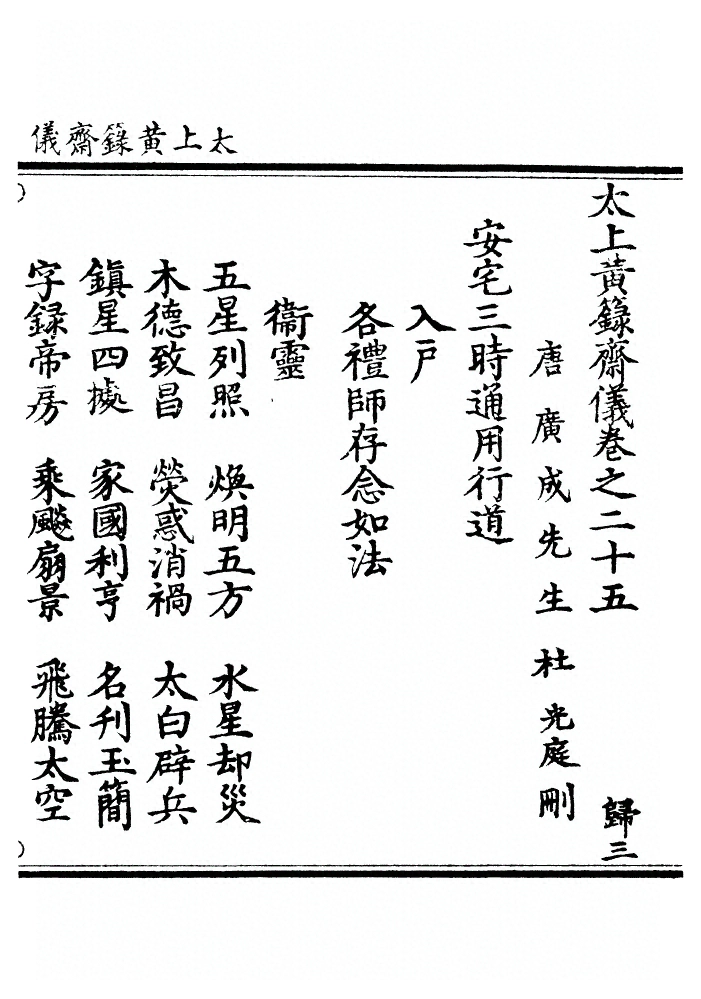 太上黄籙齋儀
太上黄籙齋儀卷之二十五 歸三
唐廣成先生杜光庭刪
安宅三時通用行道
入戶
各禮師存念如法
衞靈
五星列照 煥明五方 水星却災
木德致昌 熒惑消禍 太白辟兵
鎮星四據 家國利亨 名刋玉簡
字録帝房 乘飈扇景 飛騰太空